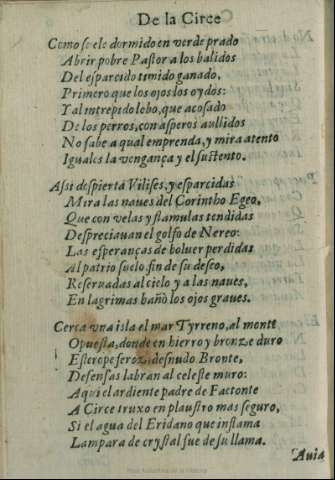 De la Circe
Como suele dormido en verde prado
Abrir pobre Pastor a los balidos
Del esparcido timido ganado,
Primero que los ojos los oydos:
Y al intrepido lobo, que acosado
De los perros, con asperos aullidos
No sabe a qual emprenda, y mira atento
Iguales la vengança y el sustento.
Assi despierta Vlisses, y esparcidas
Mira las naues del Corintho Egeo,
Que con velas y flamulas tendidas
Despreciauan el golfo de Nereo:
Las esperanças de boluer perdidas
Al patrio suelo, fin de su desco,
Reseruadas al cielo y a las naues,
En lagrimas bañò los ojos graues.
Cerca vna isla el mar Tyrreno, al monte
Opuesta, donde en hierro y bronze duro
Esterope feroz, desnudo Bronte,
Defensas labran al celeste muro:
Aqui el ardiente padre de Faetonte
A Circe truxo en plaustro mas seguro,
Si el agua del Eridano que inflama
Lampara de crystal fue de su llama.
Auia